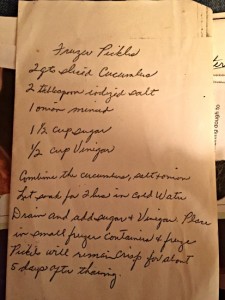 Frezer Pickles
2 qts sliced Cucumbers
2 tablespoon iodized salt
1 onion minced
1 1/2 cup sugar
1/2 cup Vinegar
Combine the cucumbers, salt & onion
Let soak for 2 hrs in cold Water
Drain and add sugar & Vinegar. Place
in small frezer containers & freeze
Pickls will remain Crisp for about
5 days after thawing.